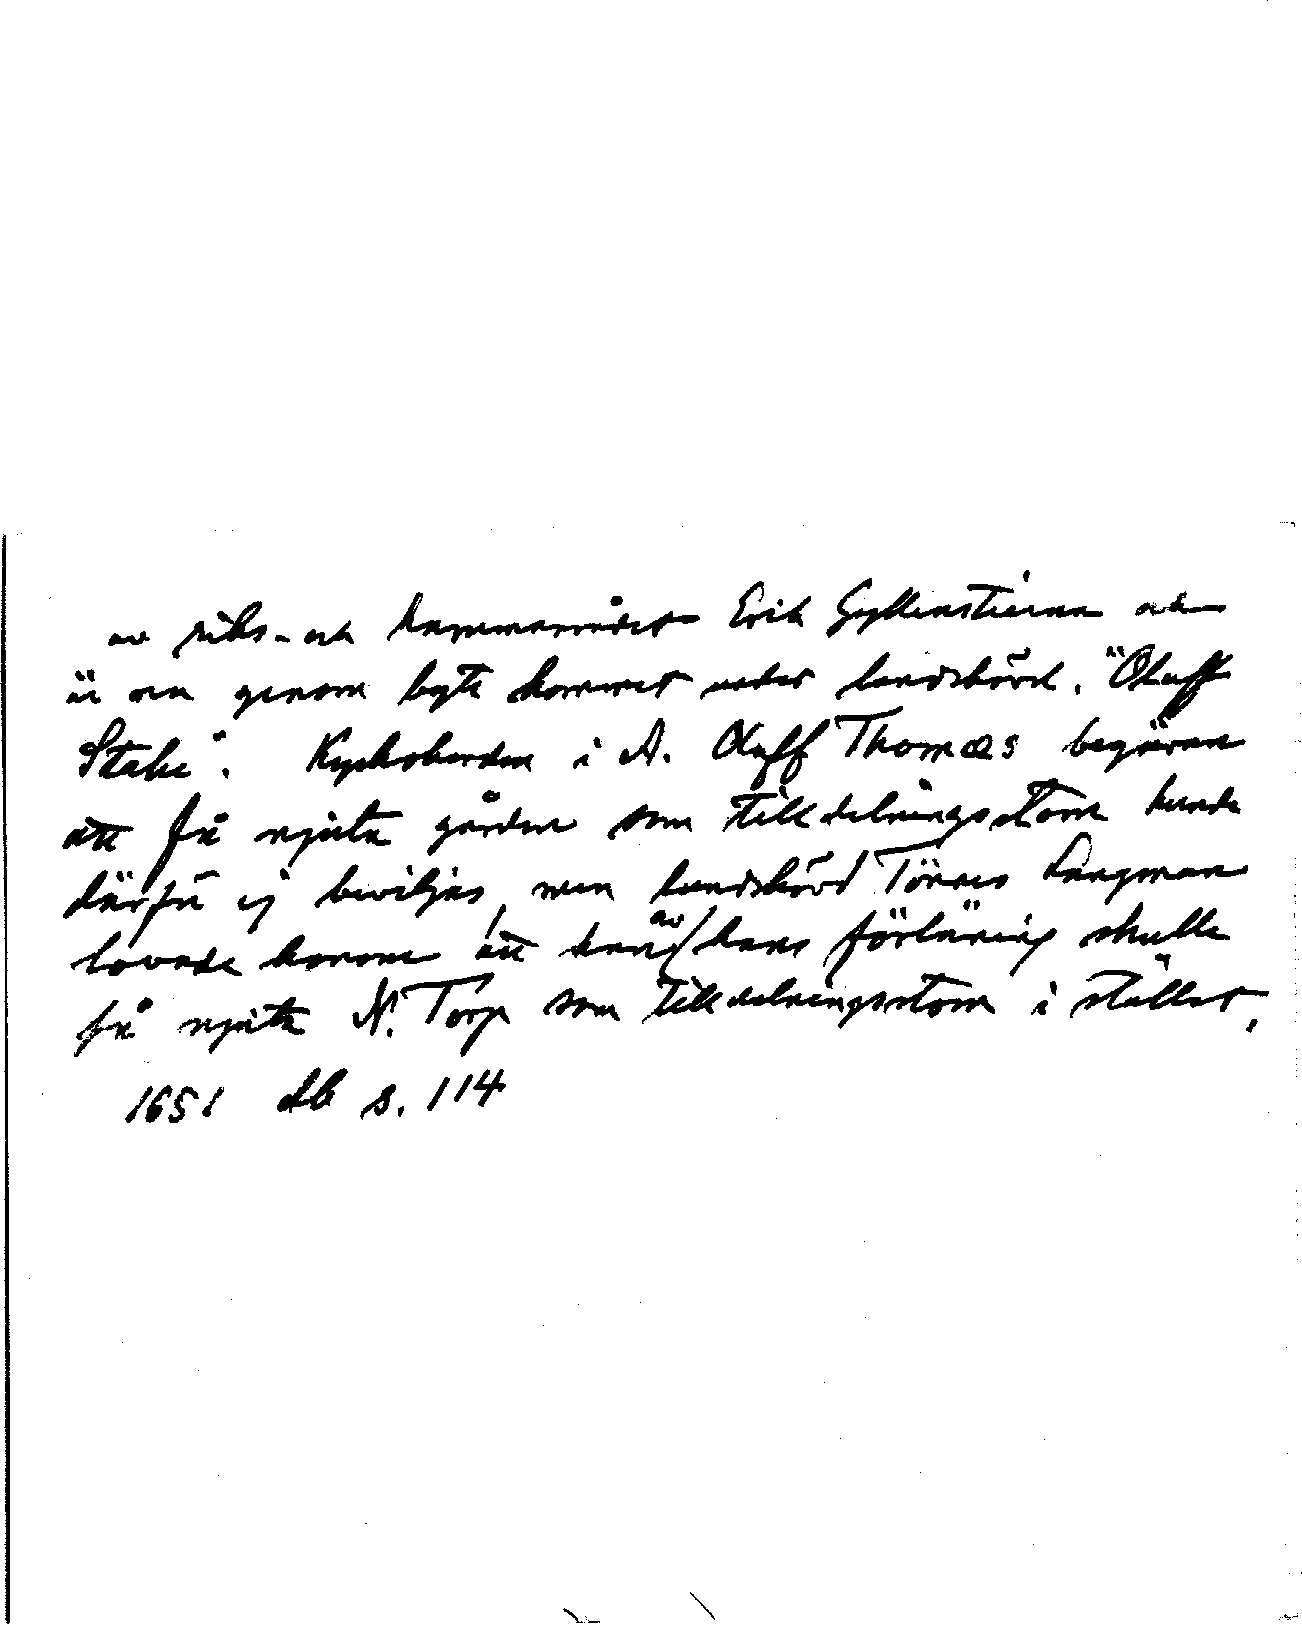 av riks- och kammarrådet Erik Gyllenstierna och
är nu genom byte kommet under landshövd. "Oluff
Stake". Kyrkoherden i A. Oluff Thomæs begäran
att få njuta gården som tilldelningstom kunde
därför ej beviljas, men landshövd Tönnes Langman
lovade honom att han av hans förläning skulle
få njuta N. Torp som tilldelningstom i stället.
1651 db s. 114